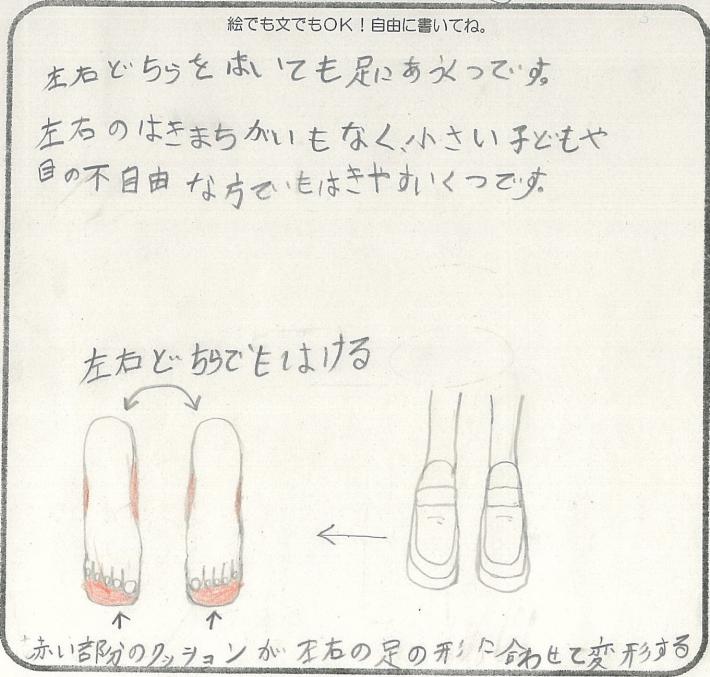 絵でも文でもOK!自由に書いてね。
左右どちらをはいても足にあうくつです。
左右のはきまちがいもなく、小さい子どもや
目の不自由な方でもはきやすいくつです。
左右どちらでもはける
赤い部分のクッションが左右の足の形に合わせて変形する